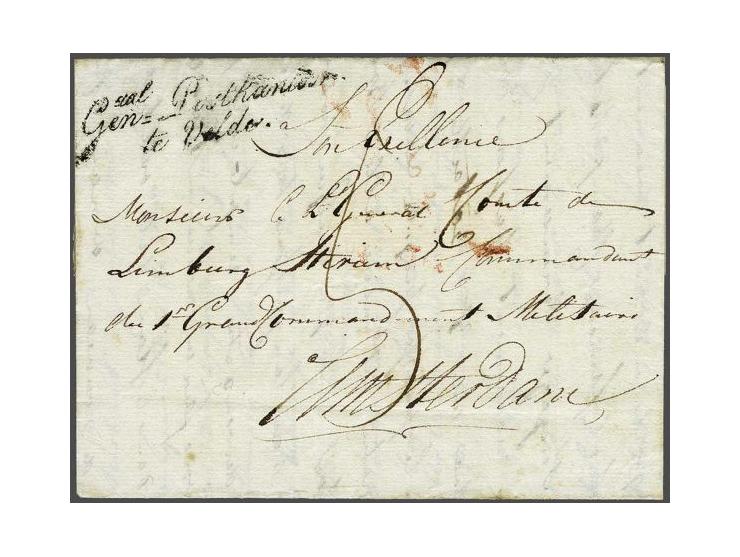 Genral = Postkantoor
te Velde.
Son Excellence
Monsieur le Lt General Comte de
Limburg Stirum Commandant
du 1r Grand Commandement Militaire
Amsterdam